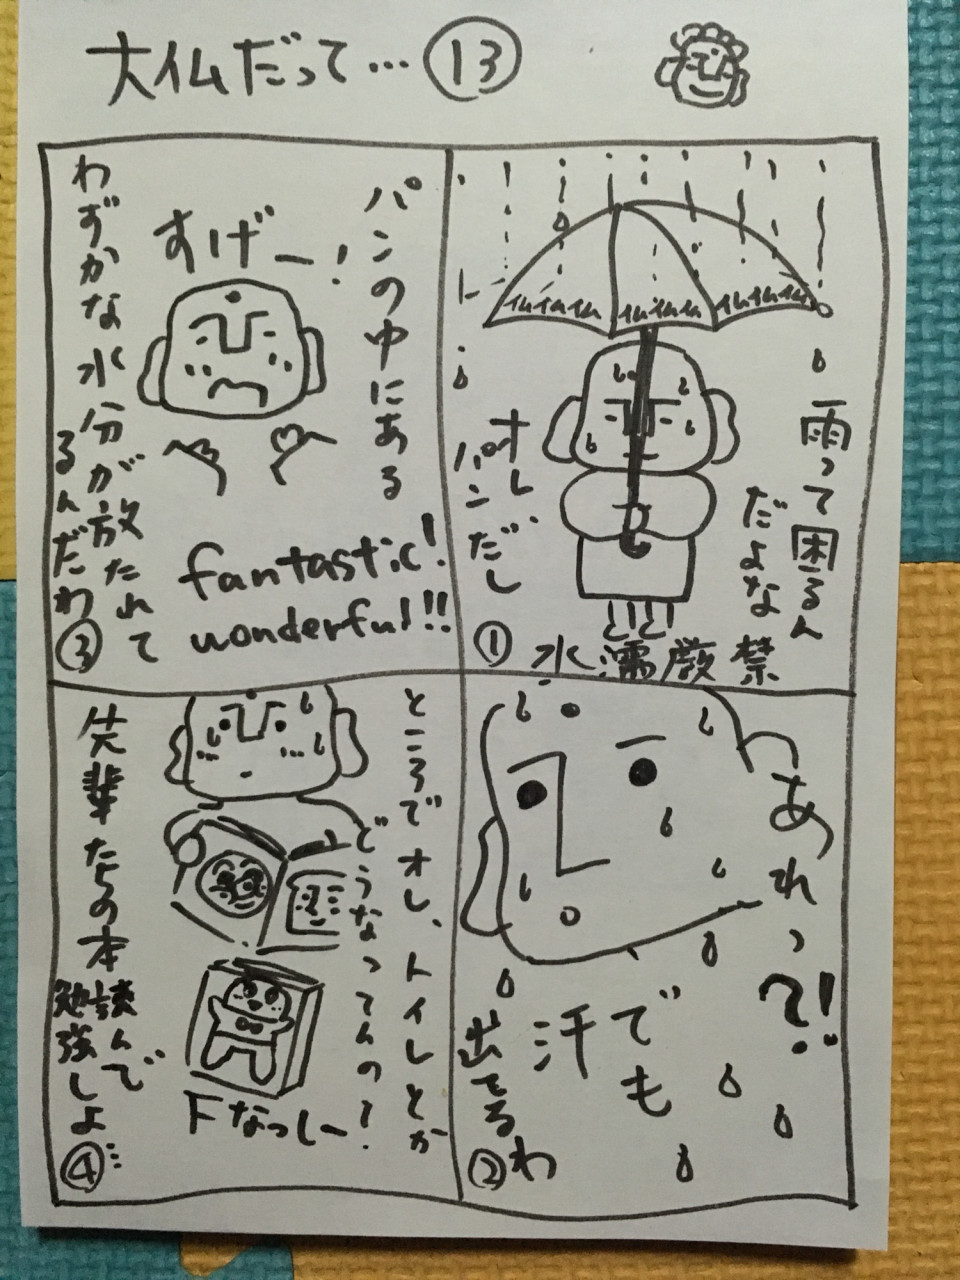 大仏だって… ⑬
仏仏仏仏 仏仏仏 仏仏仏仏
雨って困るん
だよな
オレ
パンだし
水濡厳禁
①
あれっ?!
でも
汗
出てるわ
②
パンの中にある
すげー!
わずかな水分が放たれて
るんだわ
fantastic!
wonderful!!
③
ところでオレ、トイレとか
どうなってんの!
先輩たちの本
読んで
勉強しよ…
Fなっしー
④